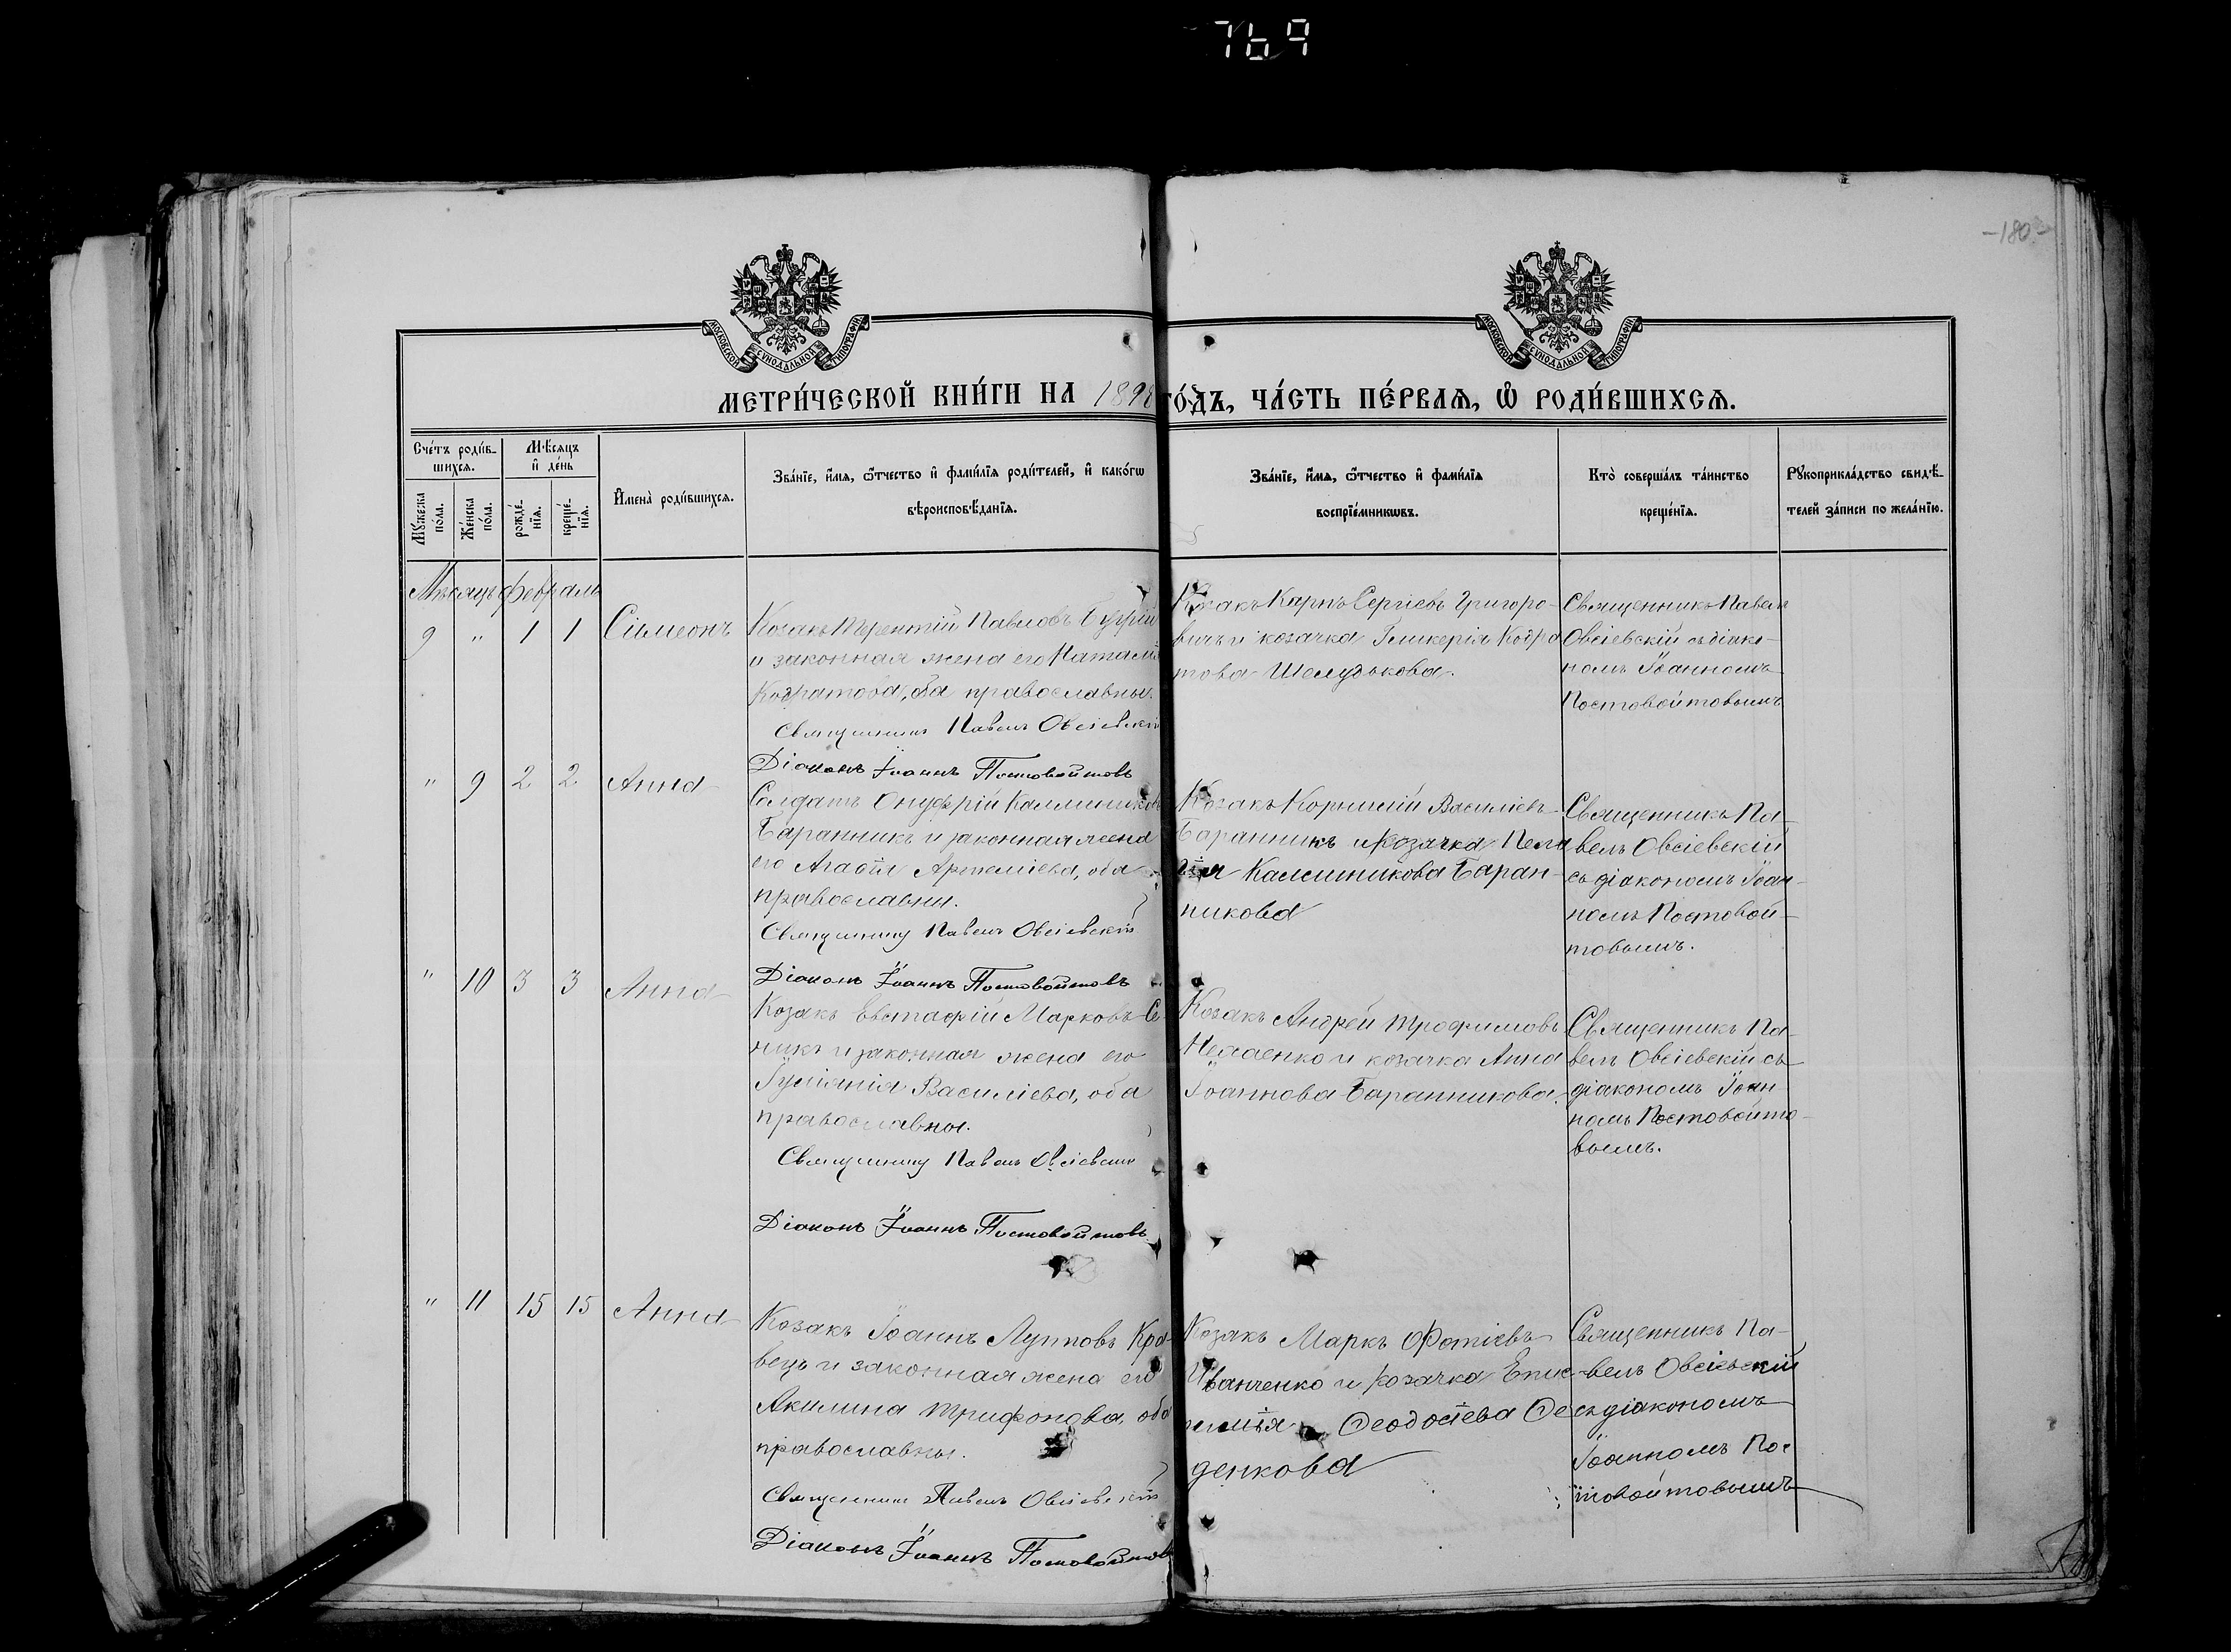 769
-180-
МОСКОВСКОЙ СѴНОДАЛЬНОЙ ТИПОГРАФІИ
МОСКОВСКОЙ СѴНОДАЛЬНОЙ ТИПОГРАФІИ
МЕТРИ́ЧЕСКОЙ КНИ́ГИ НА 1898 ГО́ДЪ, ЧА́СТЬ ПЕ́РВАѦ, Ѡ҆ РОДИ́ВШИХСѦ.
Сче́тъ роди́в-
шихсѧ.
Мꙋжеска по́ла.
Же́нска по́ла.
Мѣ́сѧцъ
и҆ де́нь
рожде́-
нїѧ.
креще́-
нїѧ.
И҆мена̀ роди́вшихсѧ.
Зва́нїе, и҆́мѧ, ѻ҆́тчество и҆ фами́лїѧ роди́телей, и҆ како́гѡ
вѣроисповѣ́данїѧ.
Зва́нїе, и҆́мѧ, ѻ҆́тчество и҆ фами́лїѧ
воспрїе́мникѡвъ.
Кто̀ соверша́лъ та́инство
креще́нїѧ.
Рꙋкоприкла́дство свидѣ́-
телей за́писи по жела́нїю.
Мѣсяцъ февраль
9 " 1 1 Сімеонъ
Козакъ Терентій Павловъ
и законная жена его Наталія
Кодратова, оба православны.
Священникъ Павелъ Овсіевскій
Діаконъ Іоаннъ Постовойтовъ
Козакъ Карпъ Сергіевъ Григоро-
вичъ и козачка Гликерія Кодра
това Шелудькова.
Священникъ Павелъ
Овсіевскій съ діако-
номъ Іоанномъ
Постовойтовымъ
" 9 2 2 Анна
Солдатъ Онуфрій Каллиников
Баранникъ и законная жена
его Агафія Артеміева, оба
православны.
Священникъ Павелъ Овсіевскій
Діаконъ Іоаннъ Постовойтовъ
Козакъ Корнилій Василіевъ
Баранникъ и козачка Пела
гія Каллиникова Баран-
никова
Священникъ Па-
велъ Овсіевскій
съ діакономъ Іоан-
номъ Постовой-
товымъ.
" 10 3 3 Анна
Козакъ Евстафій Марковъ Се
никъ и законная жена его
Іуліанія Василіева, оба
православны.
Священникъ Павелъ Овсіевскій
Діаконъ Іоаннъ Постовойтовъ
Козакъ Андрей Трофимовъ
и козачка Анна
Іоаннова Баранникова.
Священникъ Па-
велъ Овсіевскій съ
діакономъ Іоан
номъ Постовойто-
вымъ.
" 11 15 15 Анна
Козакъ Іоаннъ Лупповъ Кра-
вецъ и законная жена его
Акилина Трифонова, оба
православны.
Священникъ Павелъ Овсіевскій
Діаконъ Іоаннъ Постовойтовъ
Козакъ Маркъ Фотіевъ
Иванченко и козачка Епис-
тимія Ѳеодосіева Ѳе
денкова
Священникъ Па-
велъ Овсіевскій
съ діакономъ
Іоанномъ Пос
товойтовымъ